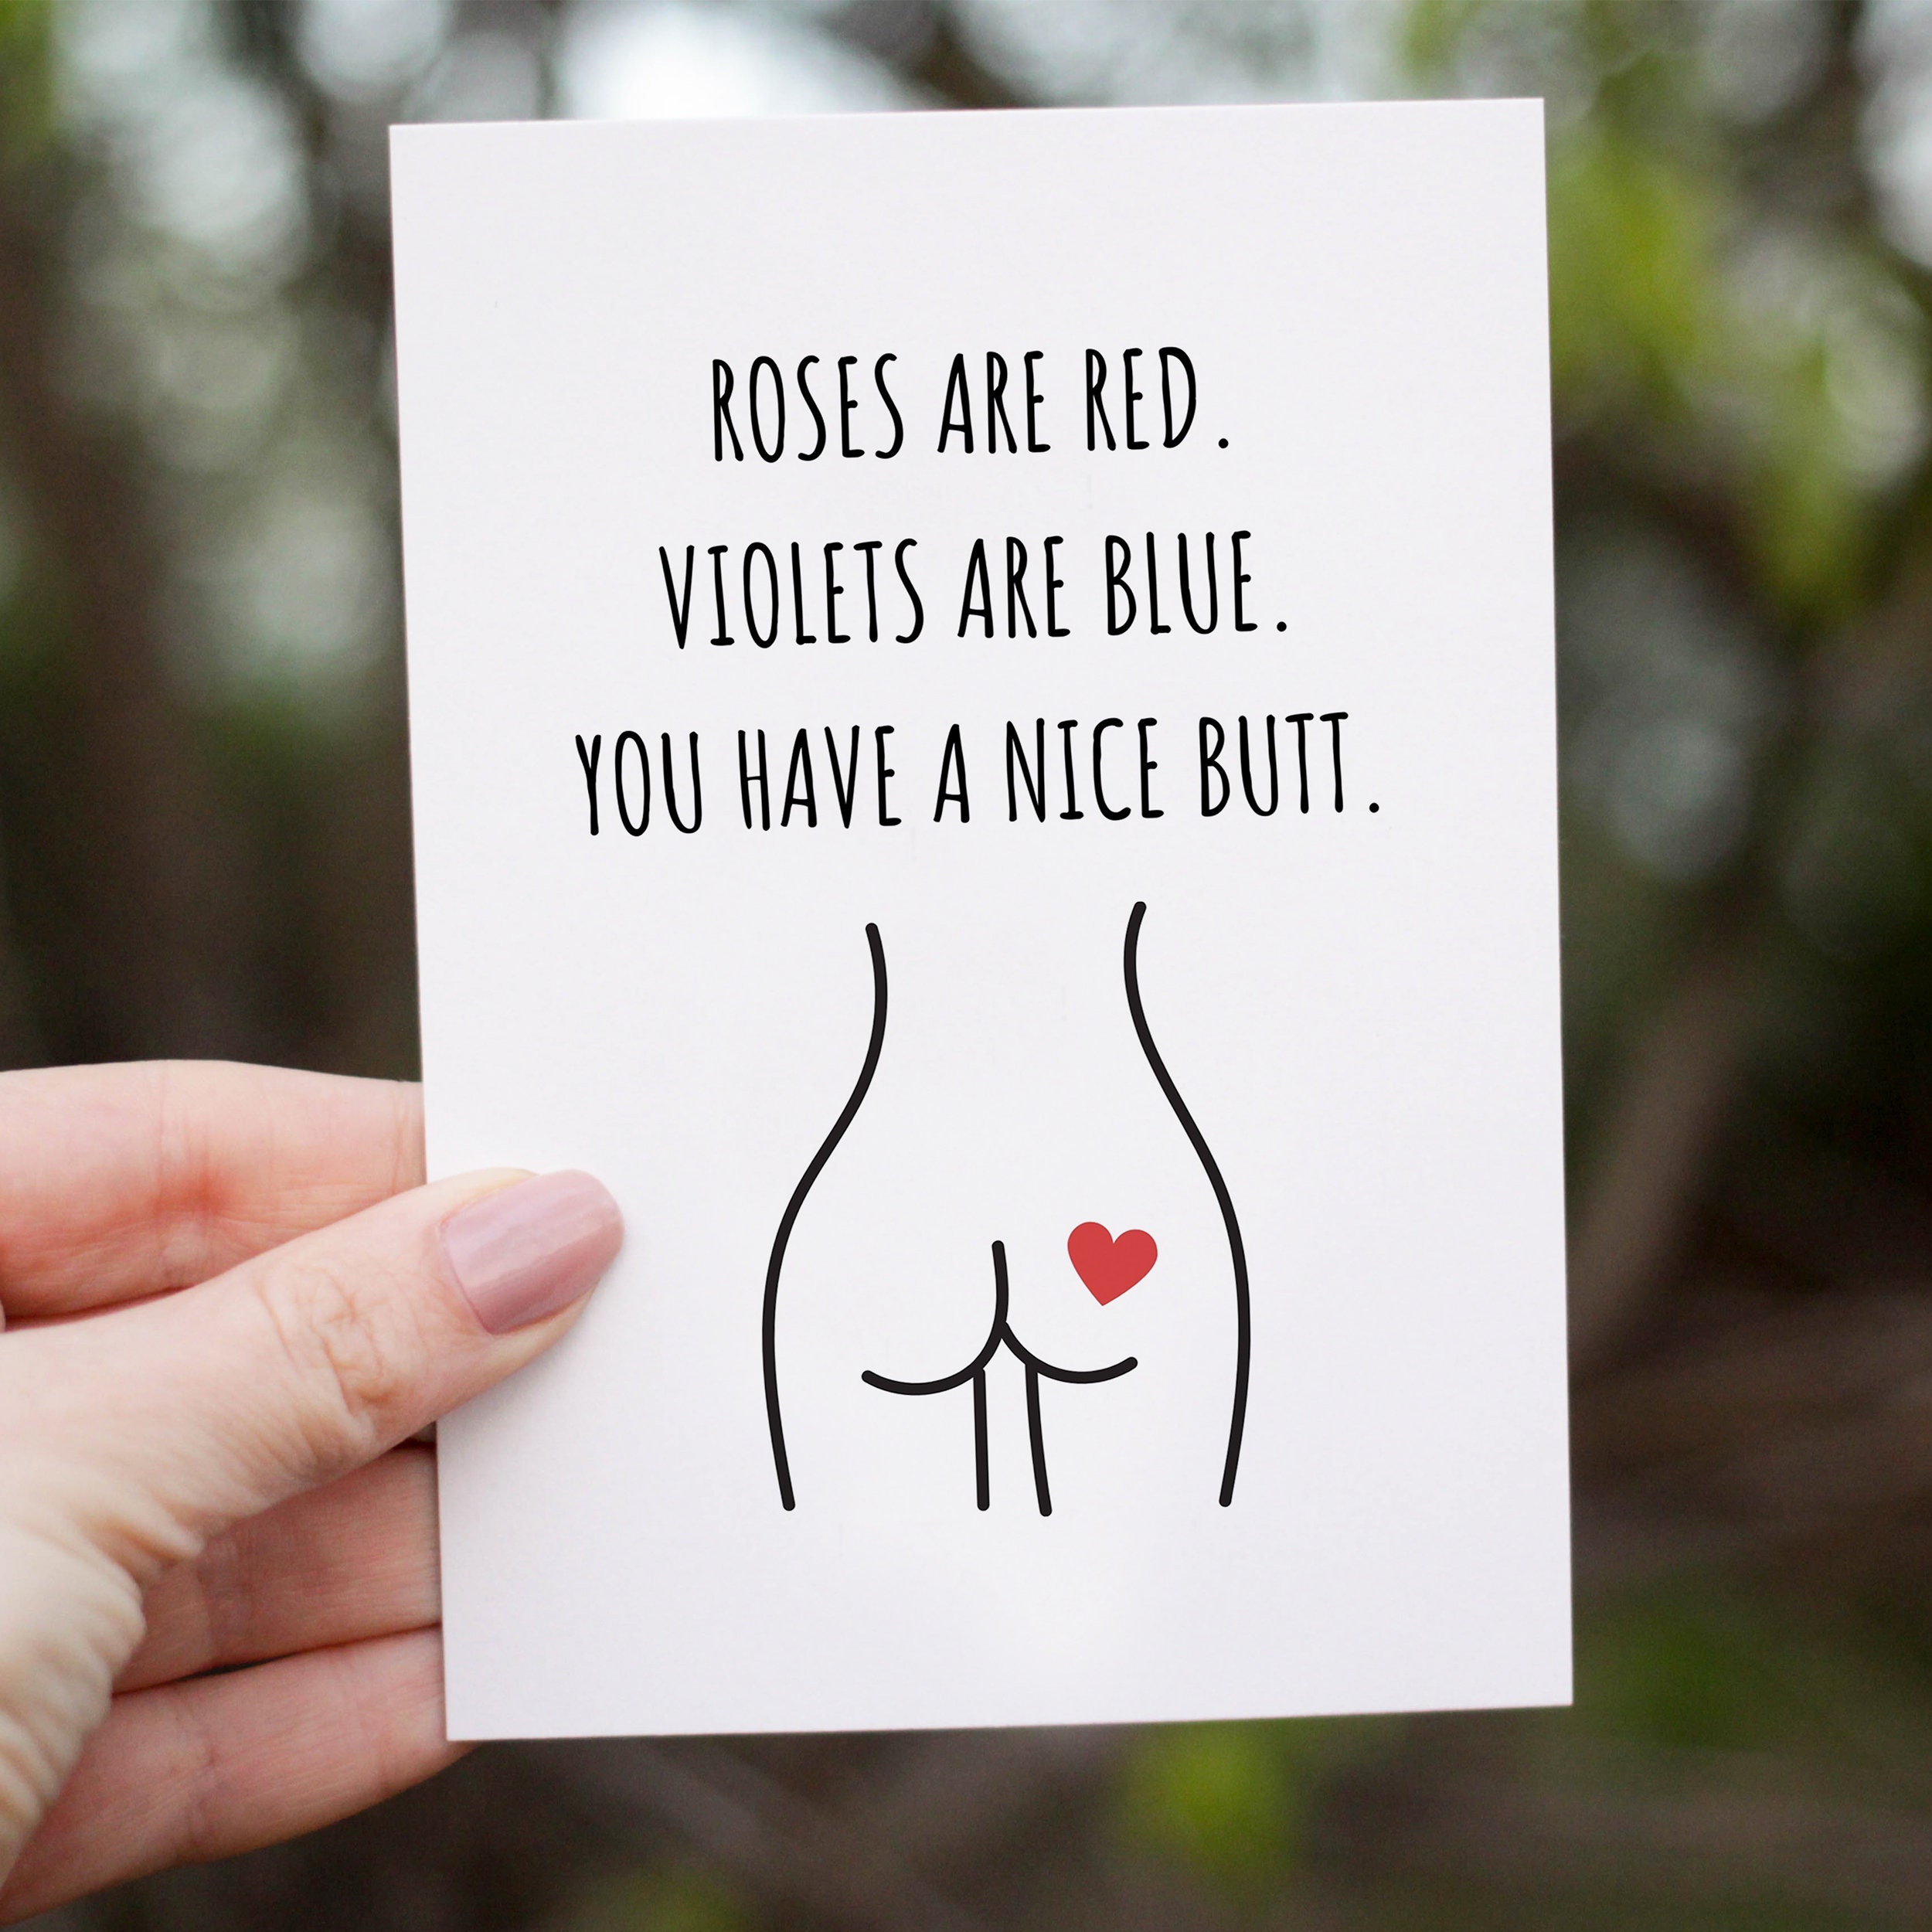 ROSES ARE RED.
VIOLETS ARE BLUE.
YOU HAVE A NICE BUTT.